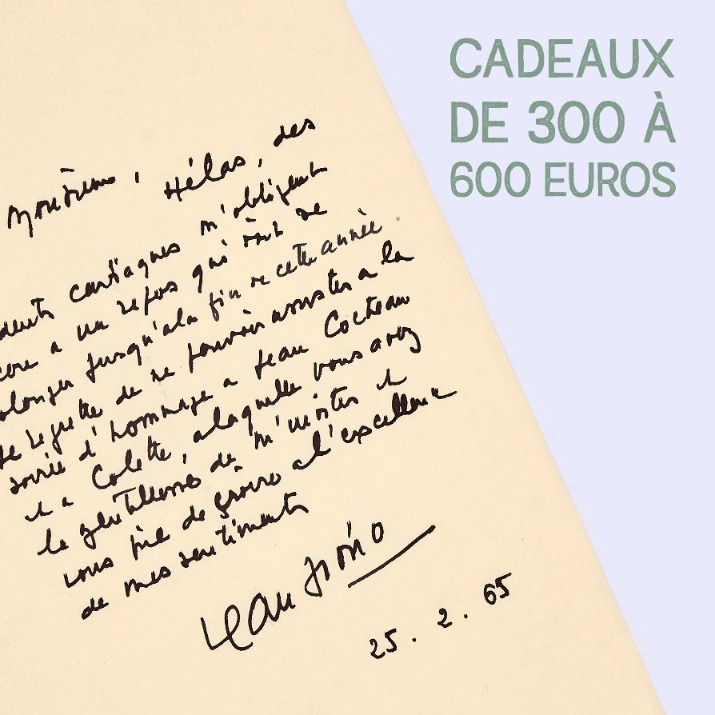 CADEAUX
DE 300 À
600 EUROS
Monsieur, Hélas, des
dents cardiaques m'obligent
core a un repos qui doit se
olonger jusqu'à la fin de cette année.
Je regrette de ne pouvoir assister a la
soirée d'hommage a Jean Cocteau
et a Colette, a laquelle vous avez
la gentillesse de m'inviter et
vous prie de croire a l'excellence
de mes sentiments
Jean Giono
25. 2. 65